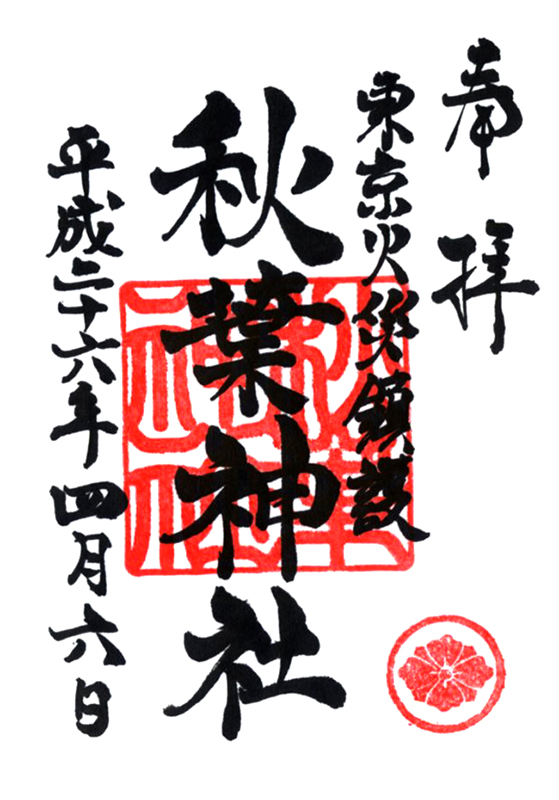 奉拝
東京火災鎮護
秋葉神社
平成二十六年四月六日